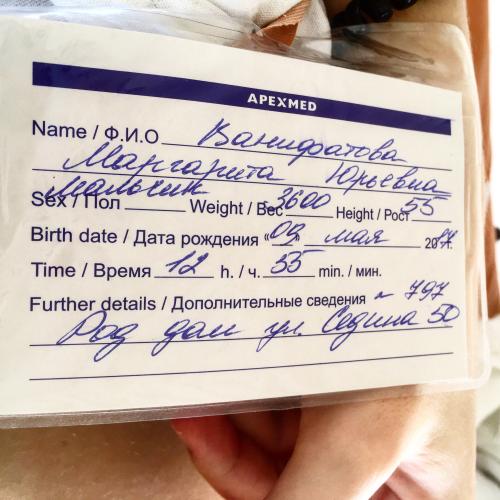 APEXMED
Name / Ф.И.О Ванифатова
Маргарита Юрьевна
Мальчик
Sex / Пол Weight / Вес 3600 Height / Рост 55
Birth date / Дата рождения «09» мая 2017.
Time / Время 12 h. / ч. 35 min. / мин.
Further details / Дополнительные сведения № 797
Род дом ул. Седина 50